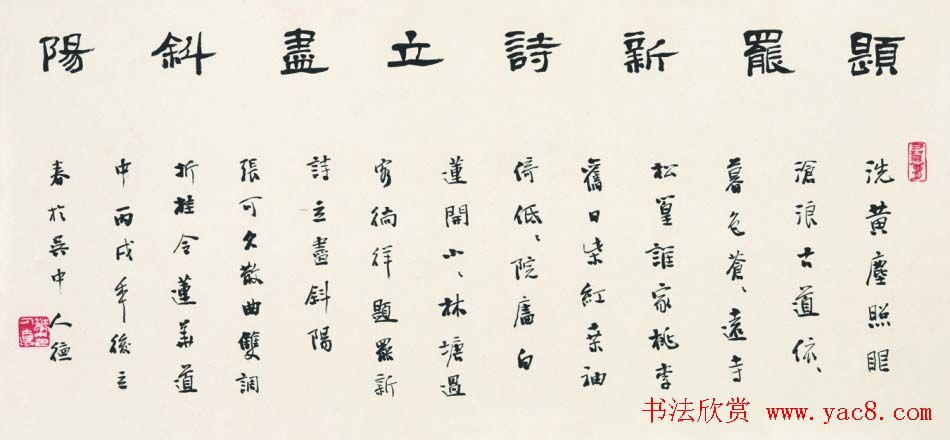 題罷新詩立盡斜陽
洗黃塵照眼
滄浪古道依、
暮色蒼、遠寺
松篁誰家桃李
舊日柴紅桑袖
倚低、院廧白
蓮開小、林塘過
客徜徉題罷新
詩立盡斜陽
張可久散曲雙調
折桂令蓮華道
中丙戌年後立
春於吳中人德
书法欣赏 www.yac8.com